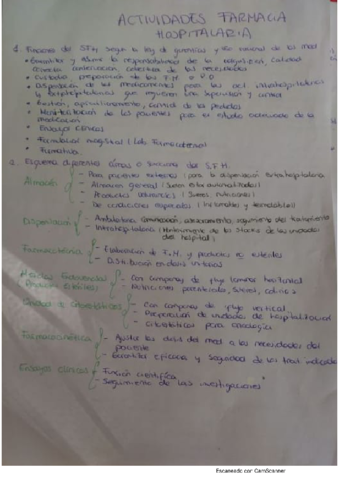 ACTIVIDADES FARMACIA
HOSPITALARIA
1. Funciones del S.F.H. según la ley de garantías y uso racional de los med.
• Garantizar y asume la responsabilidad de la adquisición, calidad
correcta conservación, cobertura de las necesidades
• Custodia, preparación de los F.M. o P.O
• Dispensación de los medicamentos para las act. intrahospitalaria
y extrahospitalaria que requieren una supervisión y control
• Gestión, aprovisionamiento, control de los productos
• de los pacientes para el estudio de la
medicación
• Ensayos Clínicos
• Formulación magistral (Lab. Farmacotecnia)
• Formativa.
2. Esquema diferentes áreas o funciones del S.F.H.
Almacén
- Para pacientes externos (para la dispensación extrahospitalaria)
- Almacén general (Sueros, estas unidades)
- Productos (Sueros, nutriciones)
- De condiciones especiales (Inflamables y termolábiles)
Dispensación
- Ambulatoria (Dispensación, asesoramiento, seguimiento del tratamiento
- Intrahospitalaria (Mantenimiento de los Stocks de las unidades
del hospital)
Farmacotecnia
- Elaboración de F.M. y productos no estériles
- Distribución en dosis unitarias
Mezclas Intravenosas
- Con campanas de flujo laminar horizontal
- Nutriciones parenterales, sueros, colirios
Unidad de Citostáticos
- Con campanas de flujo vertical
- Preparación de unidades de hospitalización
- Citostáticos para oncología
Farmacocinética
- Ajusta las dosis del med. a las necesidades del
paciente
- Garantiza eficacia y seguridad de los trat. indicados
Ensayos Clínicos
- Función científica
- Seguimiento de las investigaciones
Escaneado con CamScanner